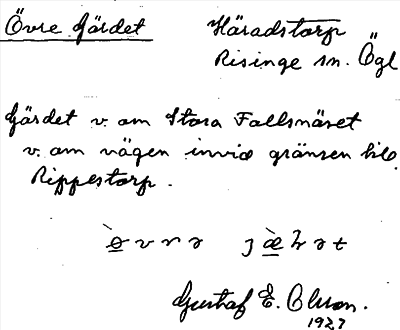 Övre Gärdet Häradstorp
Risinge sn. Ögl
Gärdet v. om Stora Fallsnäset
v. om vägen invid gränsen till
Rippestorp.
Gustaf E. Olson.
1927